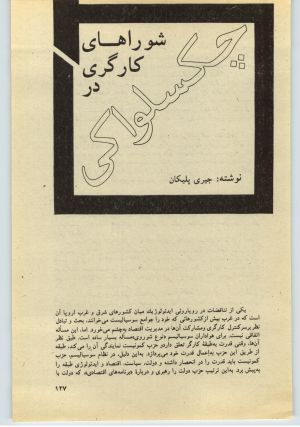 شوراهای
کارگری
در
چکسلواکی
نوشته: جیری پلیکان
یکی از تناقضات در رویارویی ایدئولوژیک میان کشورهای شرق و غرب اروپا آن
است که در غرب بیش از کشورهائی که خود را جوامع سوسیالیست می‌خوانند، بحث و تبادل
نظر بر سر کنترل کارگری و مشارکت آن‌ها در مدیریت اقتصاد به‌چشم می‌خورد. اما، این مسأله
اتفاقی نیست. برای هواداران سوسیالیسم «نوع شوروی» مسأله بسیار ساده است. طبق نظر
آن‌ها، وقتی قدرت به‌طبقه کارگر تعلق دارد و حزب کمونیست نمایندگی آن را می‌کند، طبقه
از طریق این حزب به‌اعمال قدرت خود می‌پردازد. به‌این دلیل، در نظام سوسیالیسم، حزب
کمونیست باید قدرت را در انحصار داشته و دولت، سیاست، اقتصاد و ایدئولوژی طبقه را
به‌پیش برد. به‌این ترتیب حزب دولت را رهبری و دربارهٔ «برنامه‌های اقتصادی» که دولت با
۱۲۷